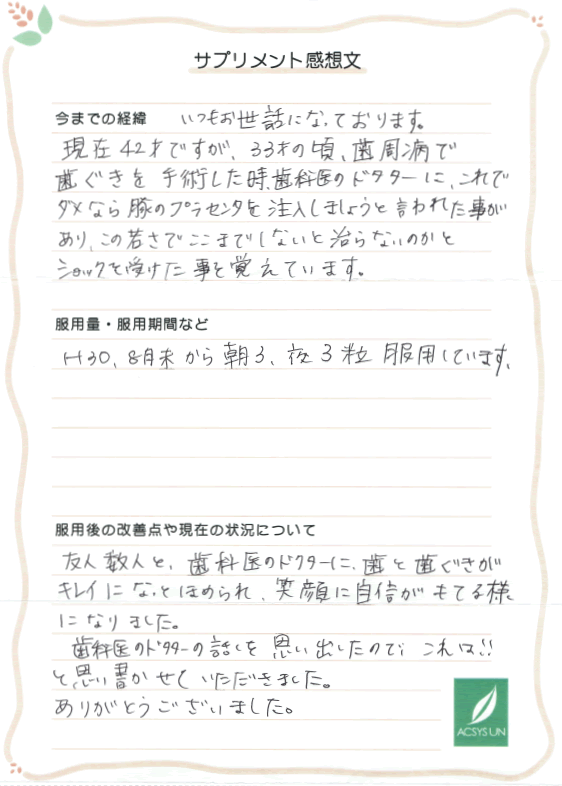 サプリメント感想文
今までの経緯 いつもお世話になっております。
現在42才ですが、33才の頃、歯周病で
歯ぐきを手術した時、歯科医のドクターに、これで
ダメなら豚のプラセンタを注入しましょうと言われた事が
あり、この若さでここまでしないと治らないのかと
ショックを受けた事を覚えています。
服用量・服用期間など
H30、8月末から朝3、夜3粒服用しています。
服用後の改善点や現在の状況について
友人数人と、歯科医のドクターに、歯と歯ぐきが
キレイになったとほめられ、笑顔に自信がもてる様
になりました。
歯科医のドクターの話しを思い出したので、これは!!
と思い書かせていただきました。
ありがとうございました。
ACSYSUN